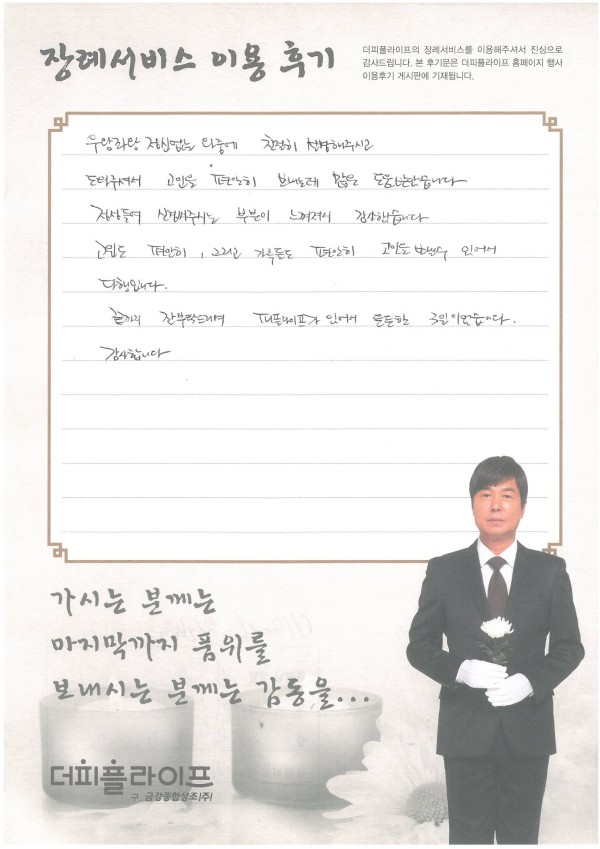 장례서비스 이용 후기
더피플라이프의 장례서비스를 이용해주셔서 진심으로
감사드립니다. 본 후기문은 더피플라이프 홈페이지 행사
이용후기 게시판에 기재됩니다.
우왕좌왕 정신없는 와중에 친절히 설명해주시고
도와주셔서 고인을 편안히 보내는데 많은 도움 받았습니다
정성들여 신경써주시는 부분이 느껴져서 감사했습니다
고인도 편안히, 그리고 가족들도 편안히 고인을 보낼수 있어서
다행입니다.
끝까지 잘부탁드리며 피플라이프가 있어서 든든한 3일이었습니다.
감사합니다
가시는 분께는
마지막까지 품위를
보내시는 분께는 감동을...
더피플라이프
구. 금강종합상조(주)